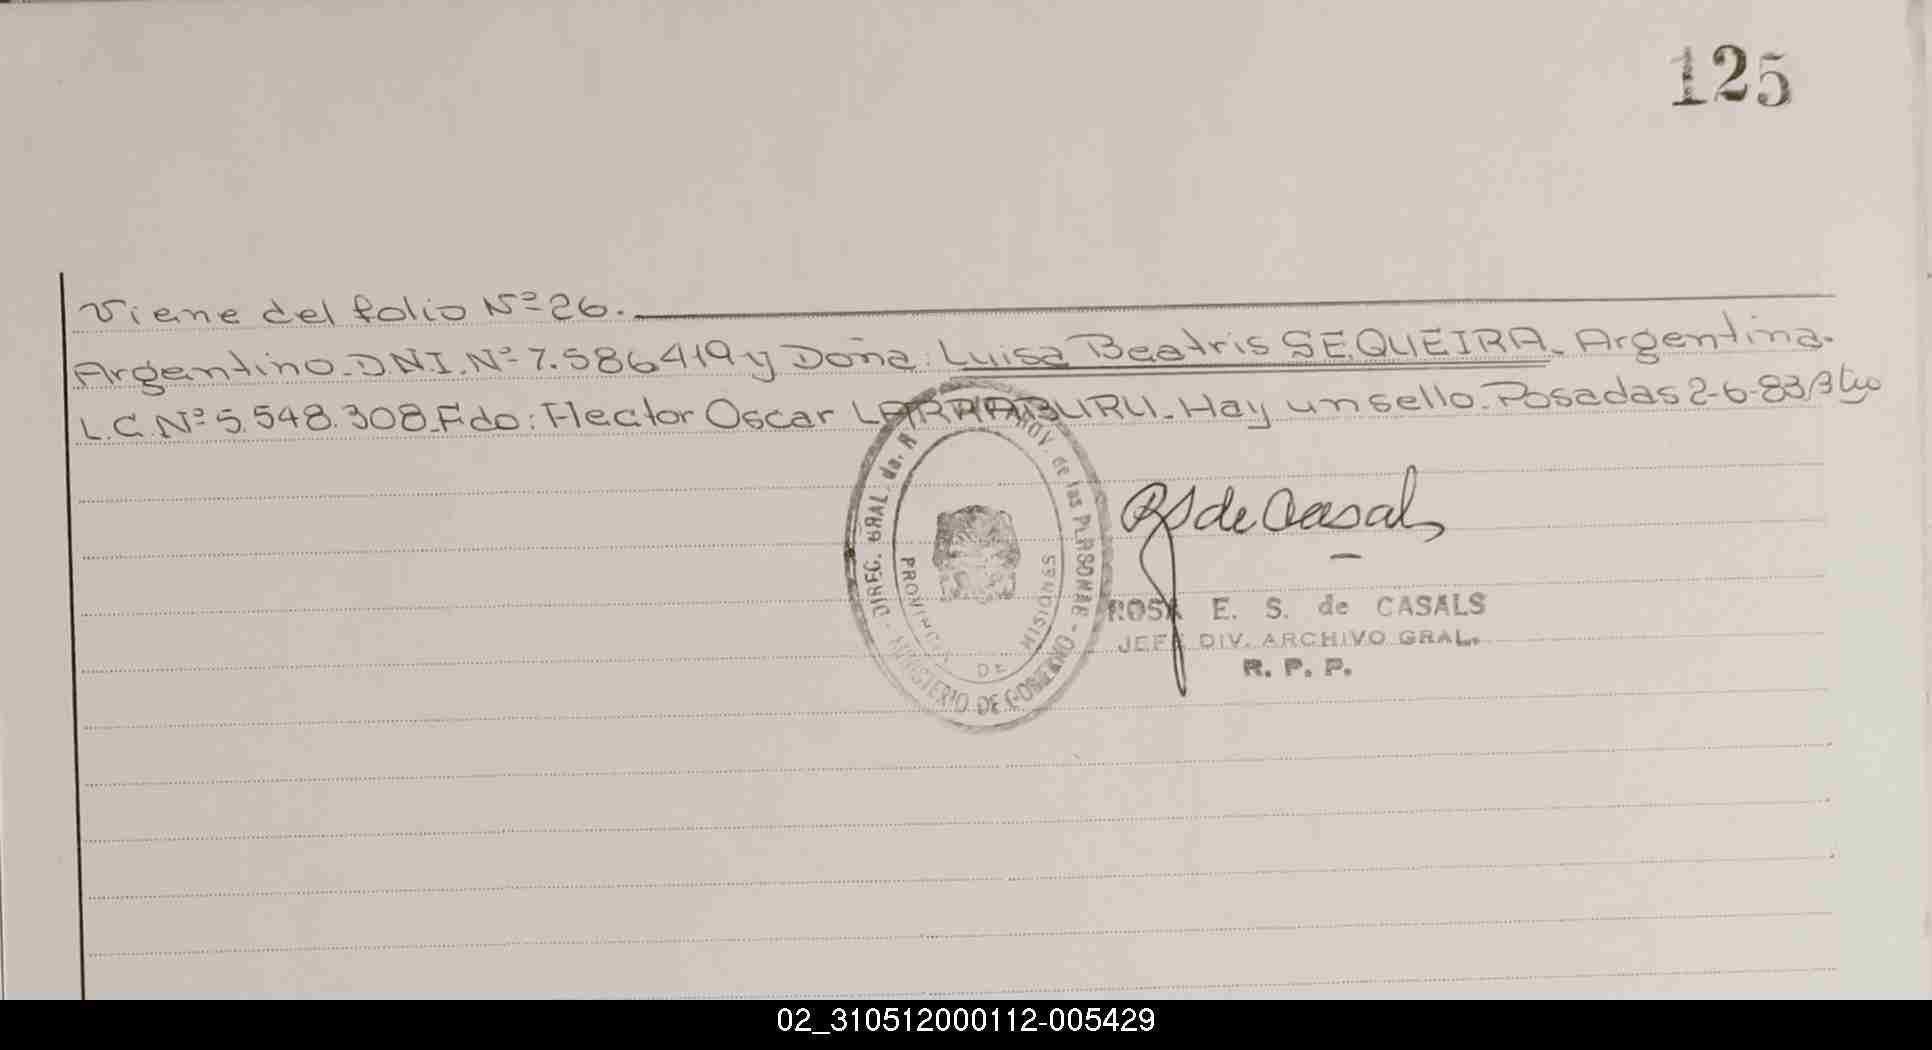 125
Viene del folio Nº 26.
Argentino. D.N.I. Nº 7.586419 y Doña: Luisa Beatris SEQUEIRA. Argentina.
L.C. Nº 5.548.308. Fdo: Hector Oscar LARRABURU. Hay un sello. Posadas 2-6-83
DIREC. GRAL. de. R PROV. de las PERSONAS - MINISTERIO DE GOBIERNO -
PROVINCIA DE MISIONES
RS de Casals
ROSA E. S. de CASALS
JEFA DIV. ARCHIVO GRAL.
R. P. P.
02_310512000112-005429